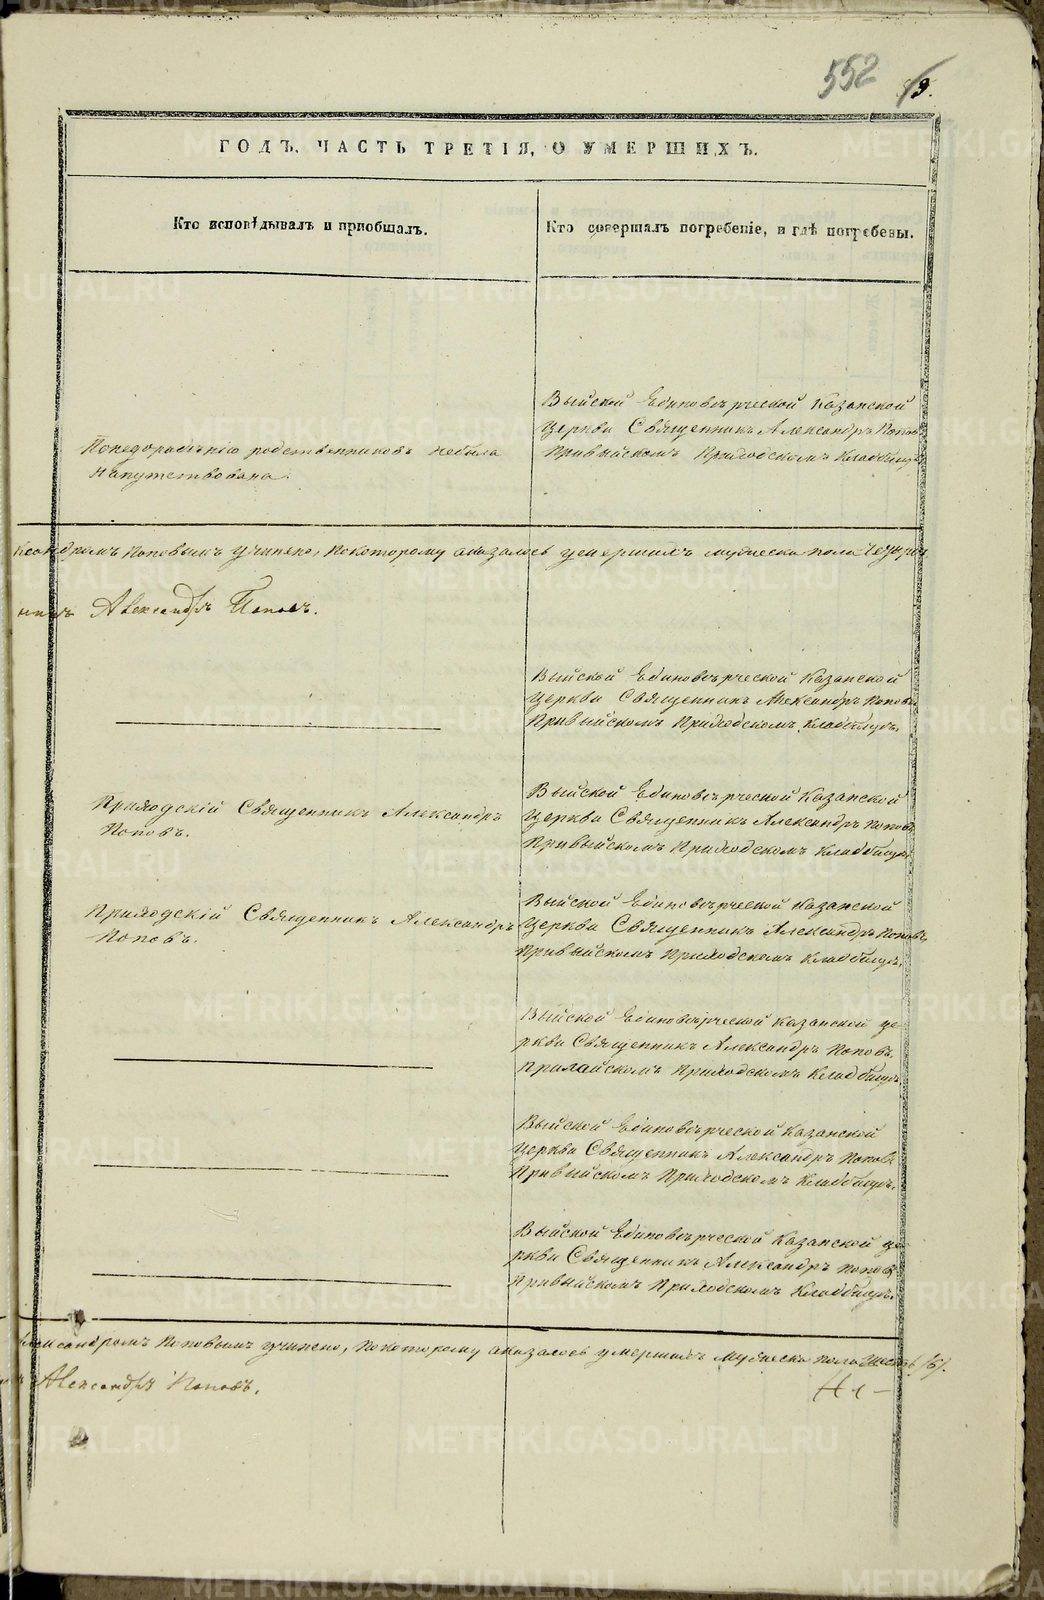 552
ГОДЪ, ЧАСТЬ ТРЕТІЯ, О УМЕРШИХЪ.
Кто исповѣдывалъ и пріобщалъ.
Кто совершалъ погребеніе, и гдѣ погребены.
Понедорадѣнію родственниковъ небыла
Напутствована.
Выйской Единовѣрческой Казанской
Церкви Священникъ Александръ Поповъ
Привыйскомъ Приходскомъ Кладбищѣ
ксандромъ Поповымъ учинено, покоторому оказалось умершихъ мужеска пола
Александръ Поповъ.
Выйской Единовѣрческой Казанской
Церкви Священникъ Александръ Поповъ
Привыйскомъ Приходскомъ Кладбищѣ.
Приходскій Священникъ Александръ
Поповъ.
Выйской Единовѣрческой Казанской
Церкви Священникъ Александръ Поповъ
Привыйскомъ Приходскомъ Кладбищѣ.
Приходскій Священникъ Александръ
Поповъ.
Выйской Единовѣрческой Казанской
Церкви Священникъ Александръ Поповъ,
Привыйскомъ Приходскомъ Кладбищѣ.
Выйской Единовѣрческой Казанской це-
ркви Священникъ Александръ Поповъ,
Приходскомъ Кладбищѣ
Выйской Единовѣрческой Казанской
Церкви Священникъ Александръ Поповъ
Привыйскомъ Приходскомъ Кладбищѣ.
Выйской Единовѣрческой Казанской це-
ркви Священникъ Александръ Поповъ
Привыйскомъ Приходскомъ Кладбищѣ.
лександромъ Поповымъ учинено, покоторому оказалось умершихъ мужеска пола шесть /6/.
Александръ Поповъ.
METRIKI.GASO-URAL.RU